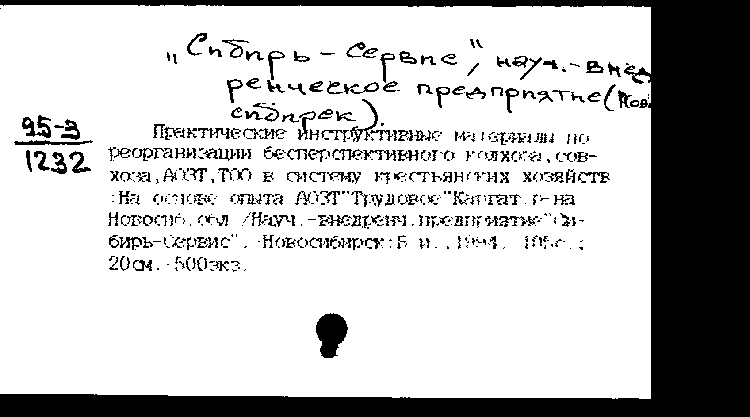 „Сибирь – Сервис", науч.-внед
ренческое предприятие (Ново
сибирск).
95-3
1232
Практические инструктивные материалы по
реорганизации бесперспективного колхоза,сов-
хоза,АОЗТ,ТОО в систему крестьянских хозяйств
:На основе опыта АОЗТ"Трудовое"Каргат.р-на
Новосиб.обл./Науч.-внедренч.предприятие"Си-
бирь-Сервис".-Новосибирск:Б.и.,1994.-105с.;
20см.-500экз.